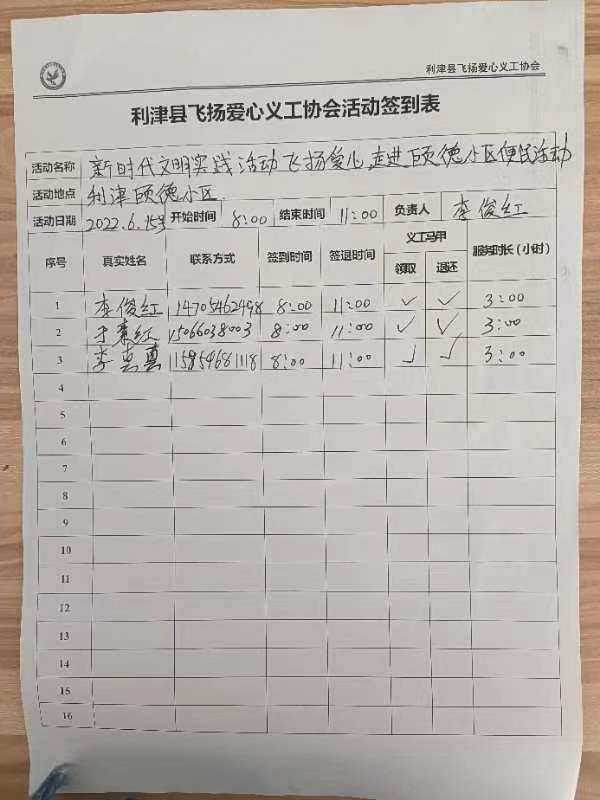 利津县飞扬爱心义工协会
利津县飞扬爱心义工协会活动签到表
活动名称 新时代文明实践活动飞扬爱心走进颐德小区便民活动
活动地点 利津颐德小区
活动日期 2022.6.15号 开始时间 8:00 结束时间 11:00 负责人 李俊红
序号 真实姓名 联系方式 签到时间 签退时间 义工马甲 服务时长(小时)
领取 退还
1 李俊红 14705462498 8:00 11:00 ✓ ✓ 3:00
2 红 15066038003 8:00 11:00 ✓ ✓ 3:00
3 李 8:00 11:00 ✓ ✓ 3:00
4
5
6
7
8
9
10
11
12
13
14
15
16